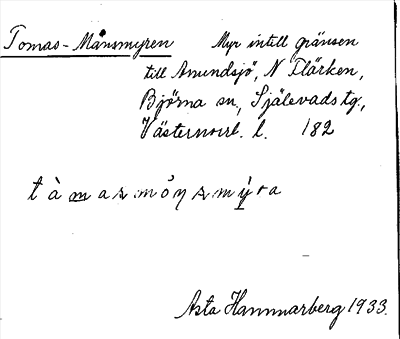 Tomas-Månsmyren Myr intill gränsen
till Anundsjö, N Flärken,
Björna sn, Själevads tg.,
Västernorrl. l. 182
Asta Hammarberg 1933.